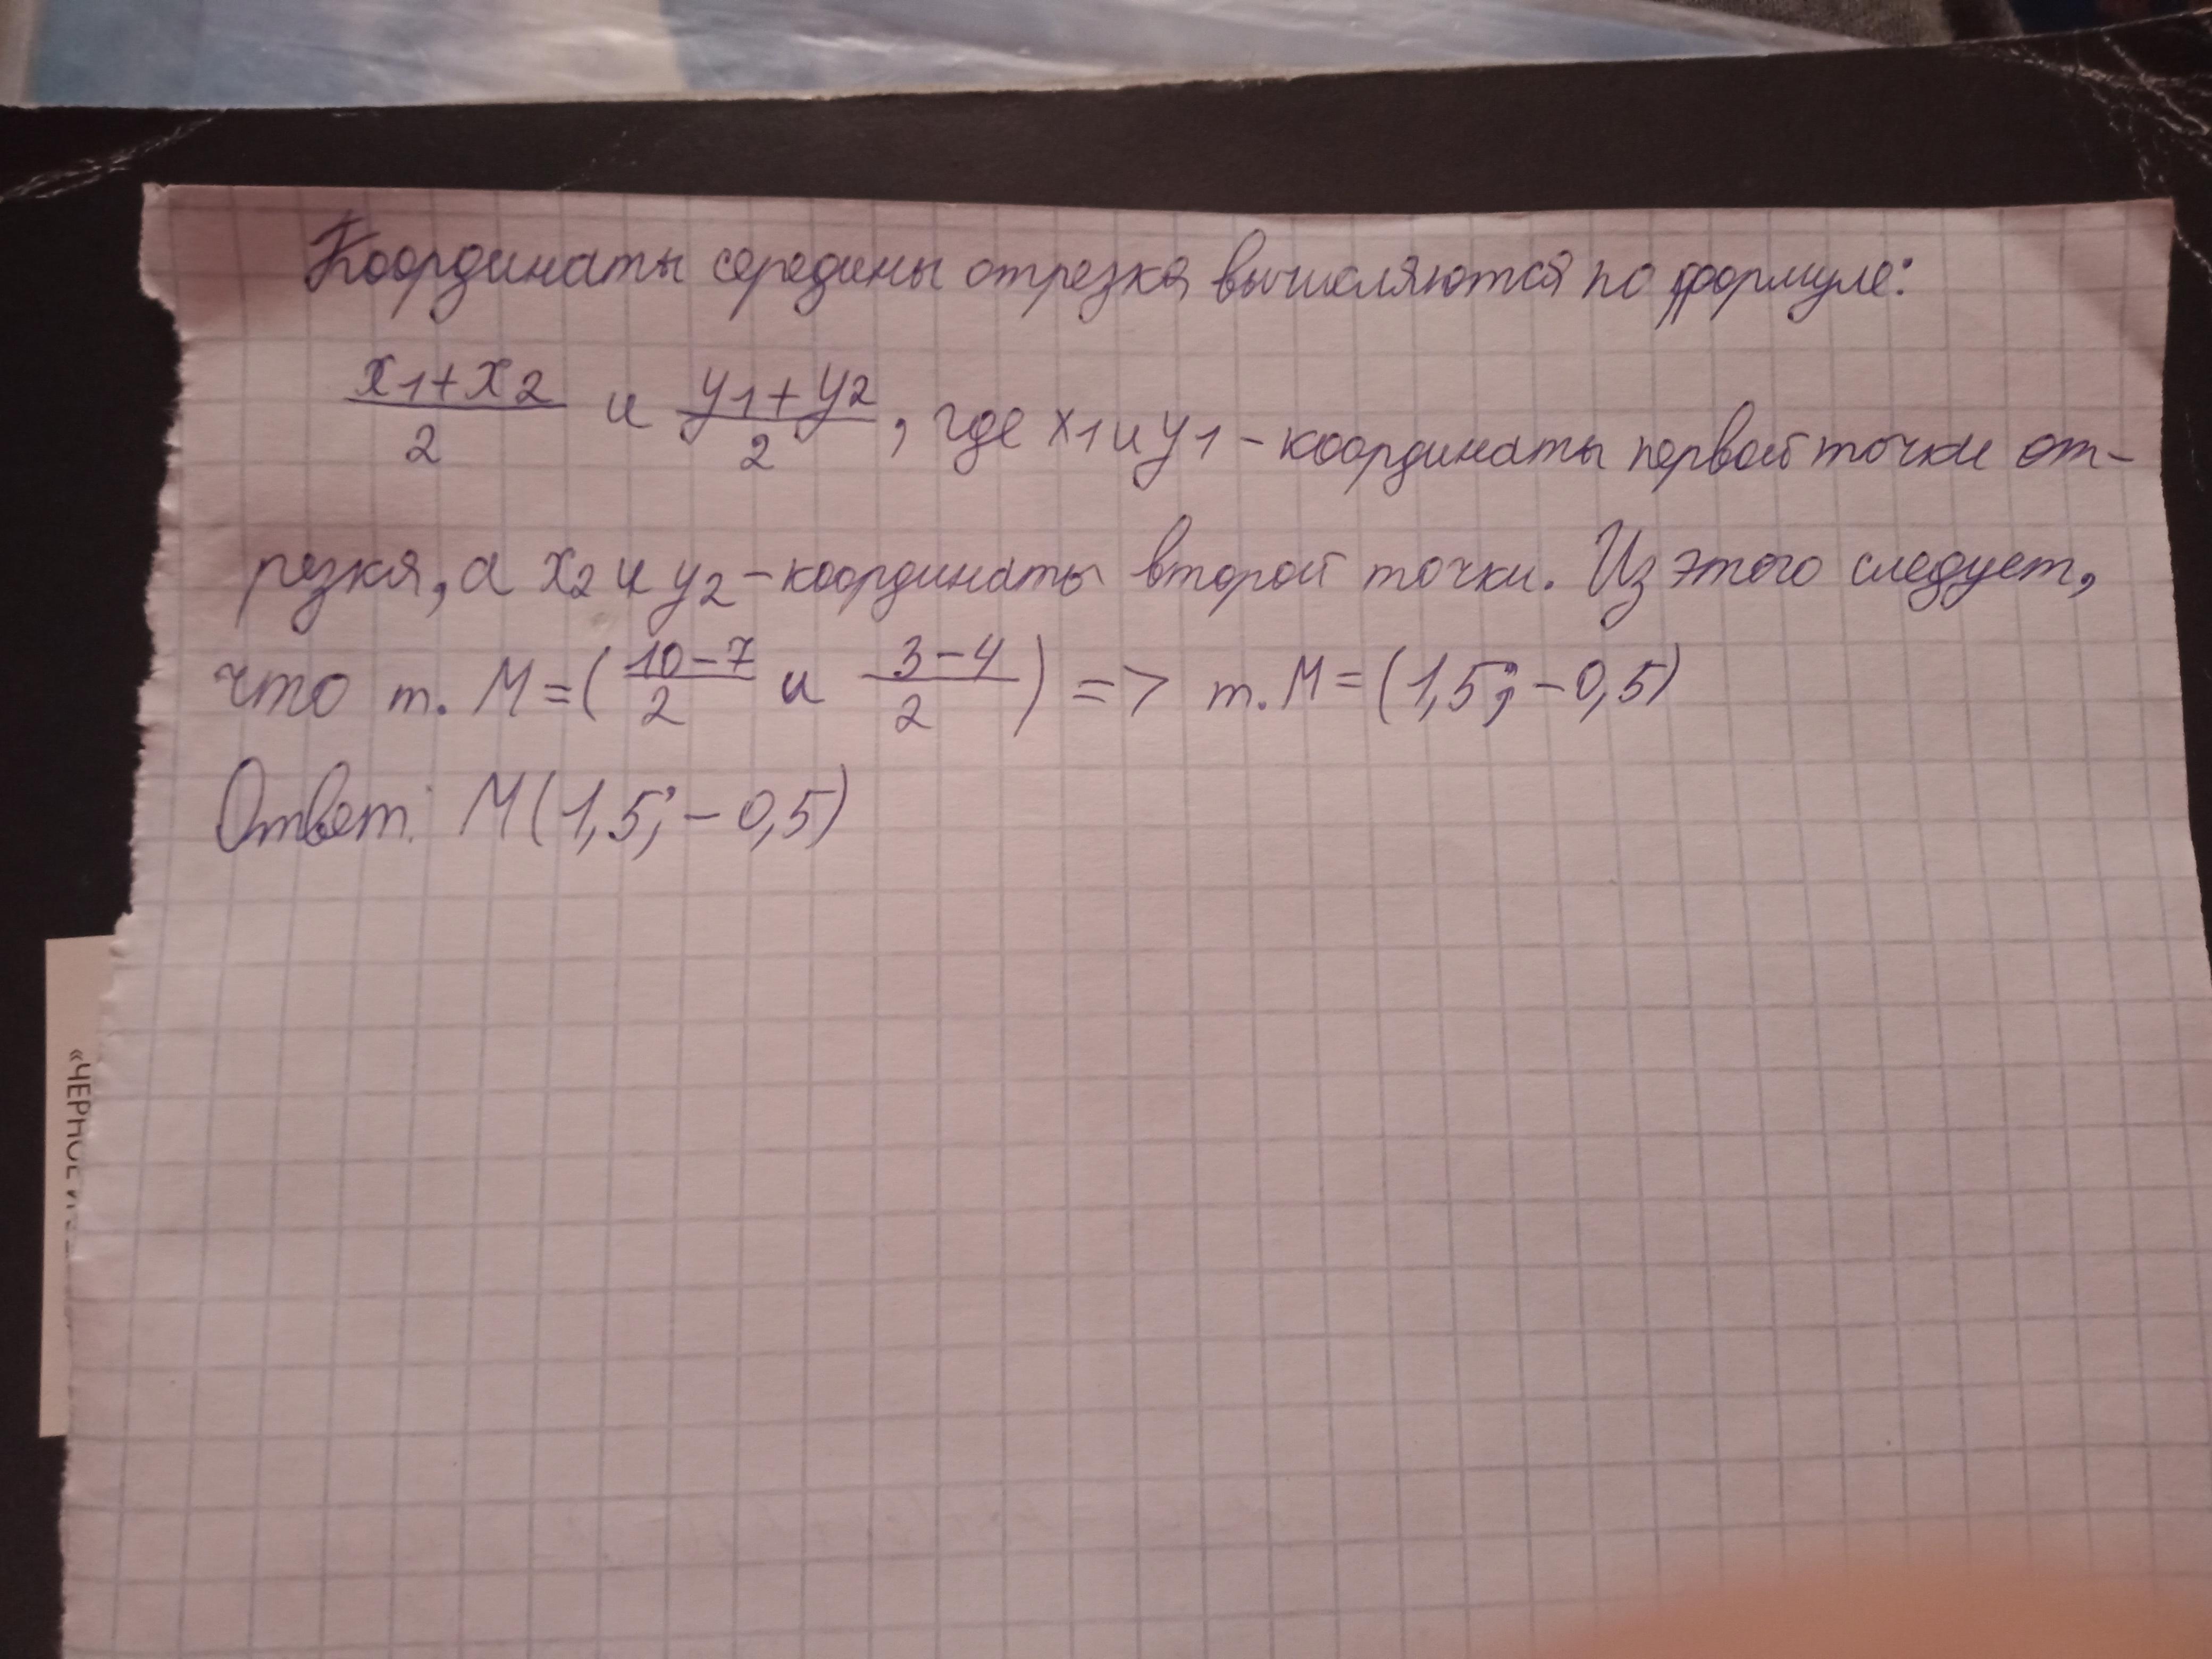 Координаты середины отрезка вычисляются по формуле:
x1+x2/2 и y1+y2/2, где x1 и y1 - координаты первой точки от-
резка, а x2 и y2 - координаты второй точки. Из этого следует,
что т. M = (10-7/2 и 3-4/2) => т. M = (1,5; -0,5)
Ответ: M(1,5; -0,5)
«ЧЕРНОЕ И